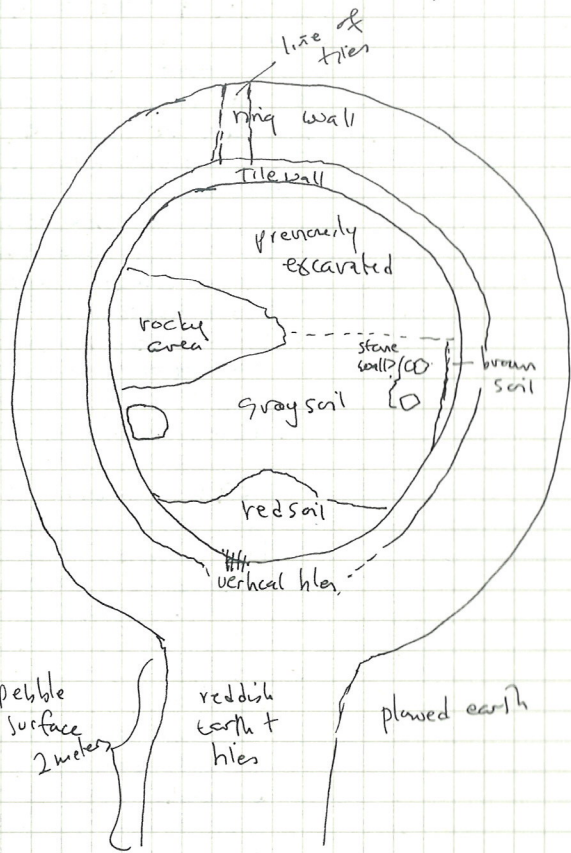 line of
tiles
ring wall
Tile wall
previously
excavated
rocky
area
stone
wall?
brown
soil
gray soil
red soil
vertical tiles
pebble
surface
2 meters
reddish
earth +
tiles
plowed earth